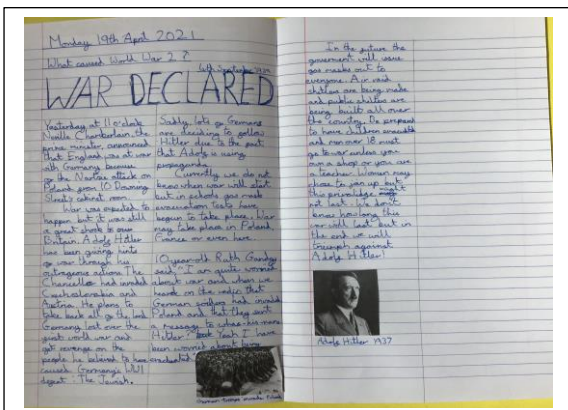 Monday 19th April 2021
What caused World War 2?
6th September 1939
WAR DECLARED
Yesterday at 11 o'clock
Neville Chamberlain, the
prime minister, announced
that England was at war
with Germany because
of the Nazi's attack on
Poland from 10 Downing
Street's cabinet room.
War was expected to
happen but it was still
a great shock to our
Britain. Adolf Hitler
has been going into
war through his
outrageous actions. The
Chancellor had invaded
Czechoslovakia and
Austria. He plans to
take back all of the land
Germany lost over the
great world war and
get revenge on the
people he believed to have
caused Germany's WW1
defeat: The Jewish.
Sadly lots of Germans
are deciding to follow
Hitler due to the past
that Adolf is using
propaganda.
Currently we do not
know when war will start
but in schools gas mask
evacuation tests have
begun to take place. War
may take place in Poland,
France or even here.
10 year old Ruth
said "I am quite worried
about war and when we
heard on the radio that
German soldiers had invaded
Poland and that they sent
a message to
Yeah I have
been worried about being
evacuated."
German troops invade Poland
In the future the
government will issue
gas masks out to
everyone. Air raid
shelters are being made
and public shelters are
being built all over
the country. Be prepared
to have children evacuated
and men over 18 must
go to war unless you
run a shop or you are
a teacher. Women may
chose to join up but
this privilege might
not last. We don't
know how long this
war will last but in
the end we will
triumph against
Adolf Hitler!
Adolf Hitler 1937